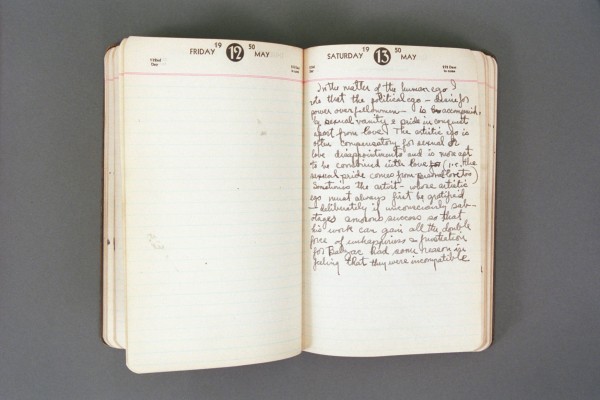 FRIDAY 19 12 50 MAY
132nd Day
SATURDAY 19 13 50 MAY
In the matter of the human ego I
note that the political ego – desire for
power over fellowmen – is accompanied
by sexual vanity & pride in conquest
apart from love. The artistic ego is
often compensatory for sexual or
love disappointments and is more apt
to be combined with love (i.e. the
sexual pride comes from love too)
Sometimes the artist – whose artistic
ego must always first be gratified
– deliberately if unconsciously sab-
otages amorous success so that
his work can gain all the double
force of unhappiness & frustration
for Balzac had some reason in
feeling that they were incompatible